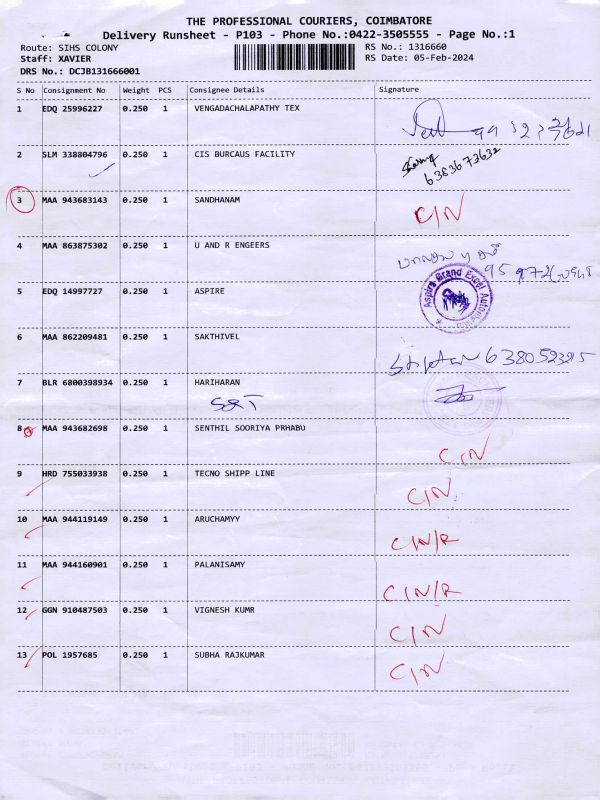 THE PROFESSIONAL COURIERS, COIMBATORE
Delivery Runsheet - P103 - Phone No.:0422-3505555 - Page No.:1
Route: SIHS COLONY RS No.: 1316660
Staff: XAVIER RS Date: 05-Feb-2024
DRS No.: DCJB131666001
S No Consignment No Weight PCS Consignee Details Signature
1 EDQ 25996227 0.250 1 VENGADACHALAPATHY TEX
2 SLM 338804796 0.250 1 CIS BURCAUS FACILITY
6383673632
3 MAA 943683143 0.250 1 SANDHANAM C/N
4 MAA 863875302 0.250 1 U AND R ENGEERS
5 EDQ 14997727 0.250 1 ASPIRE
Aspire Brand Excel
6 MAA 862209481 0.250 1 SAKTHIVEL
7 BLR 6800398934 0.250 1 HARIHARAN
8 MAA 943682698 0.250 1 SENTHIL SOORIYA PRHABU C/N
9 HRD 755033938 0.250 1 TECNO SHIPP LINE C/N
10 MAA 944119149 0.250 1 ARUCHAMYY C/N/R
11 MAA 944160901 0.250 1 PALANISAMY C/N/R
12 GGN 910487503 0.250 1 VIGNESH KUMR C/N
13 POL 1957685 0.250 1 SUBHA RAJKUMAR C/N